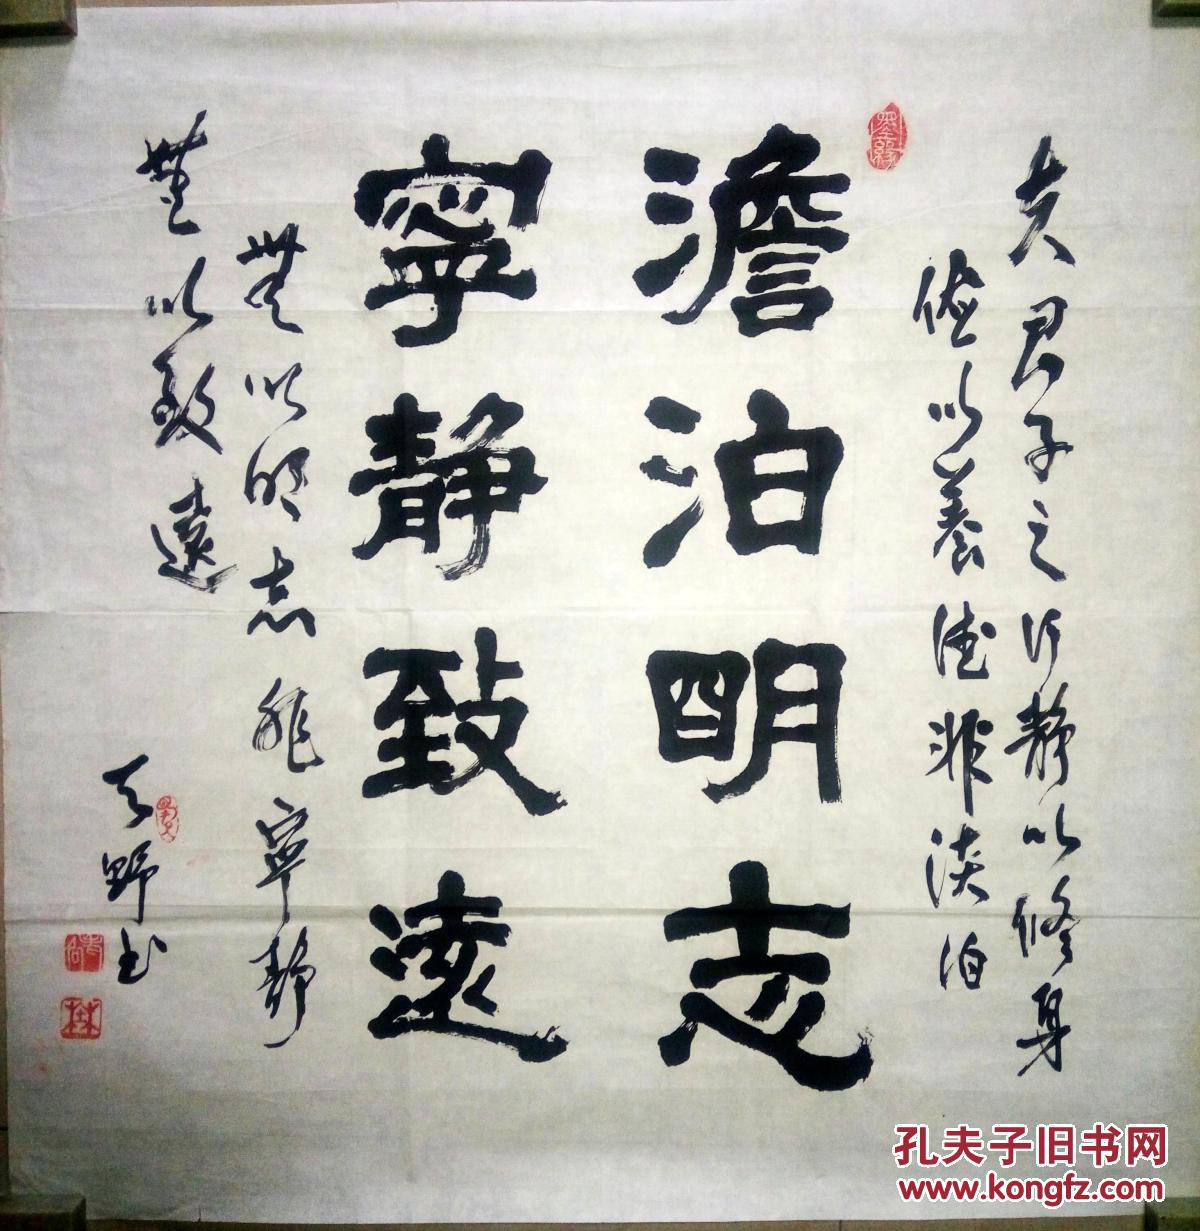 夫君子之行静以修身
俭以养德非淡泊
澹泊明志
寧静致遠
無以明志非寧静
無以致遠
天野书
孔夫子旧书网
www.kongfz.com